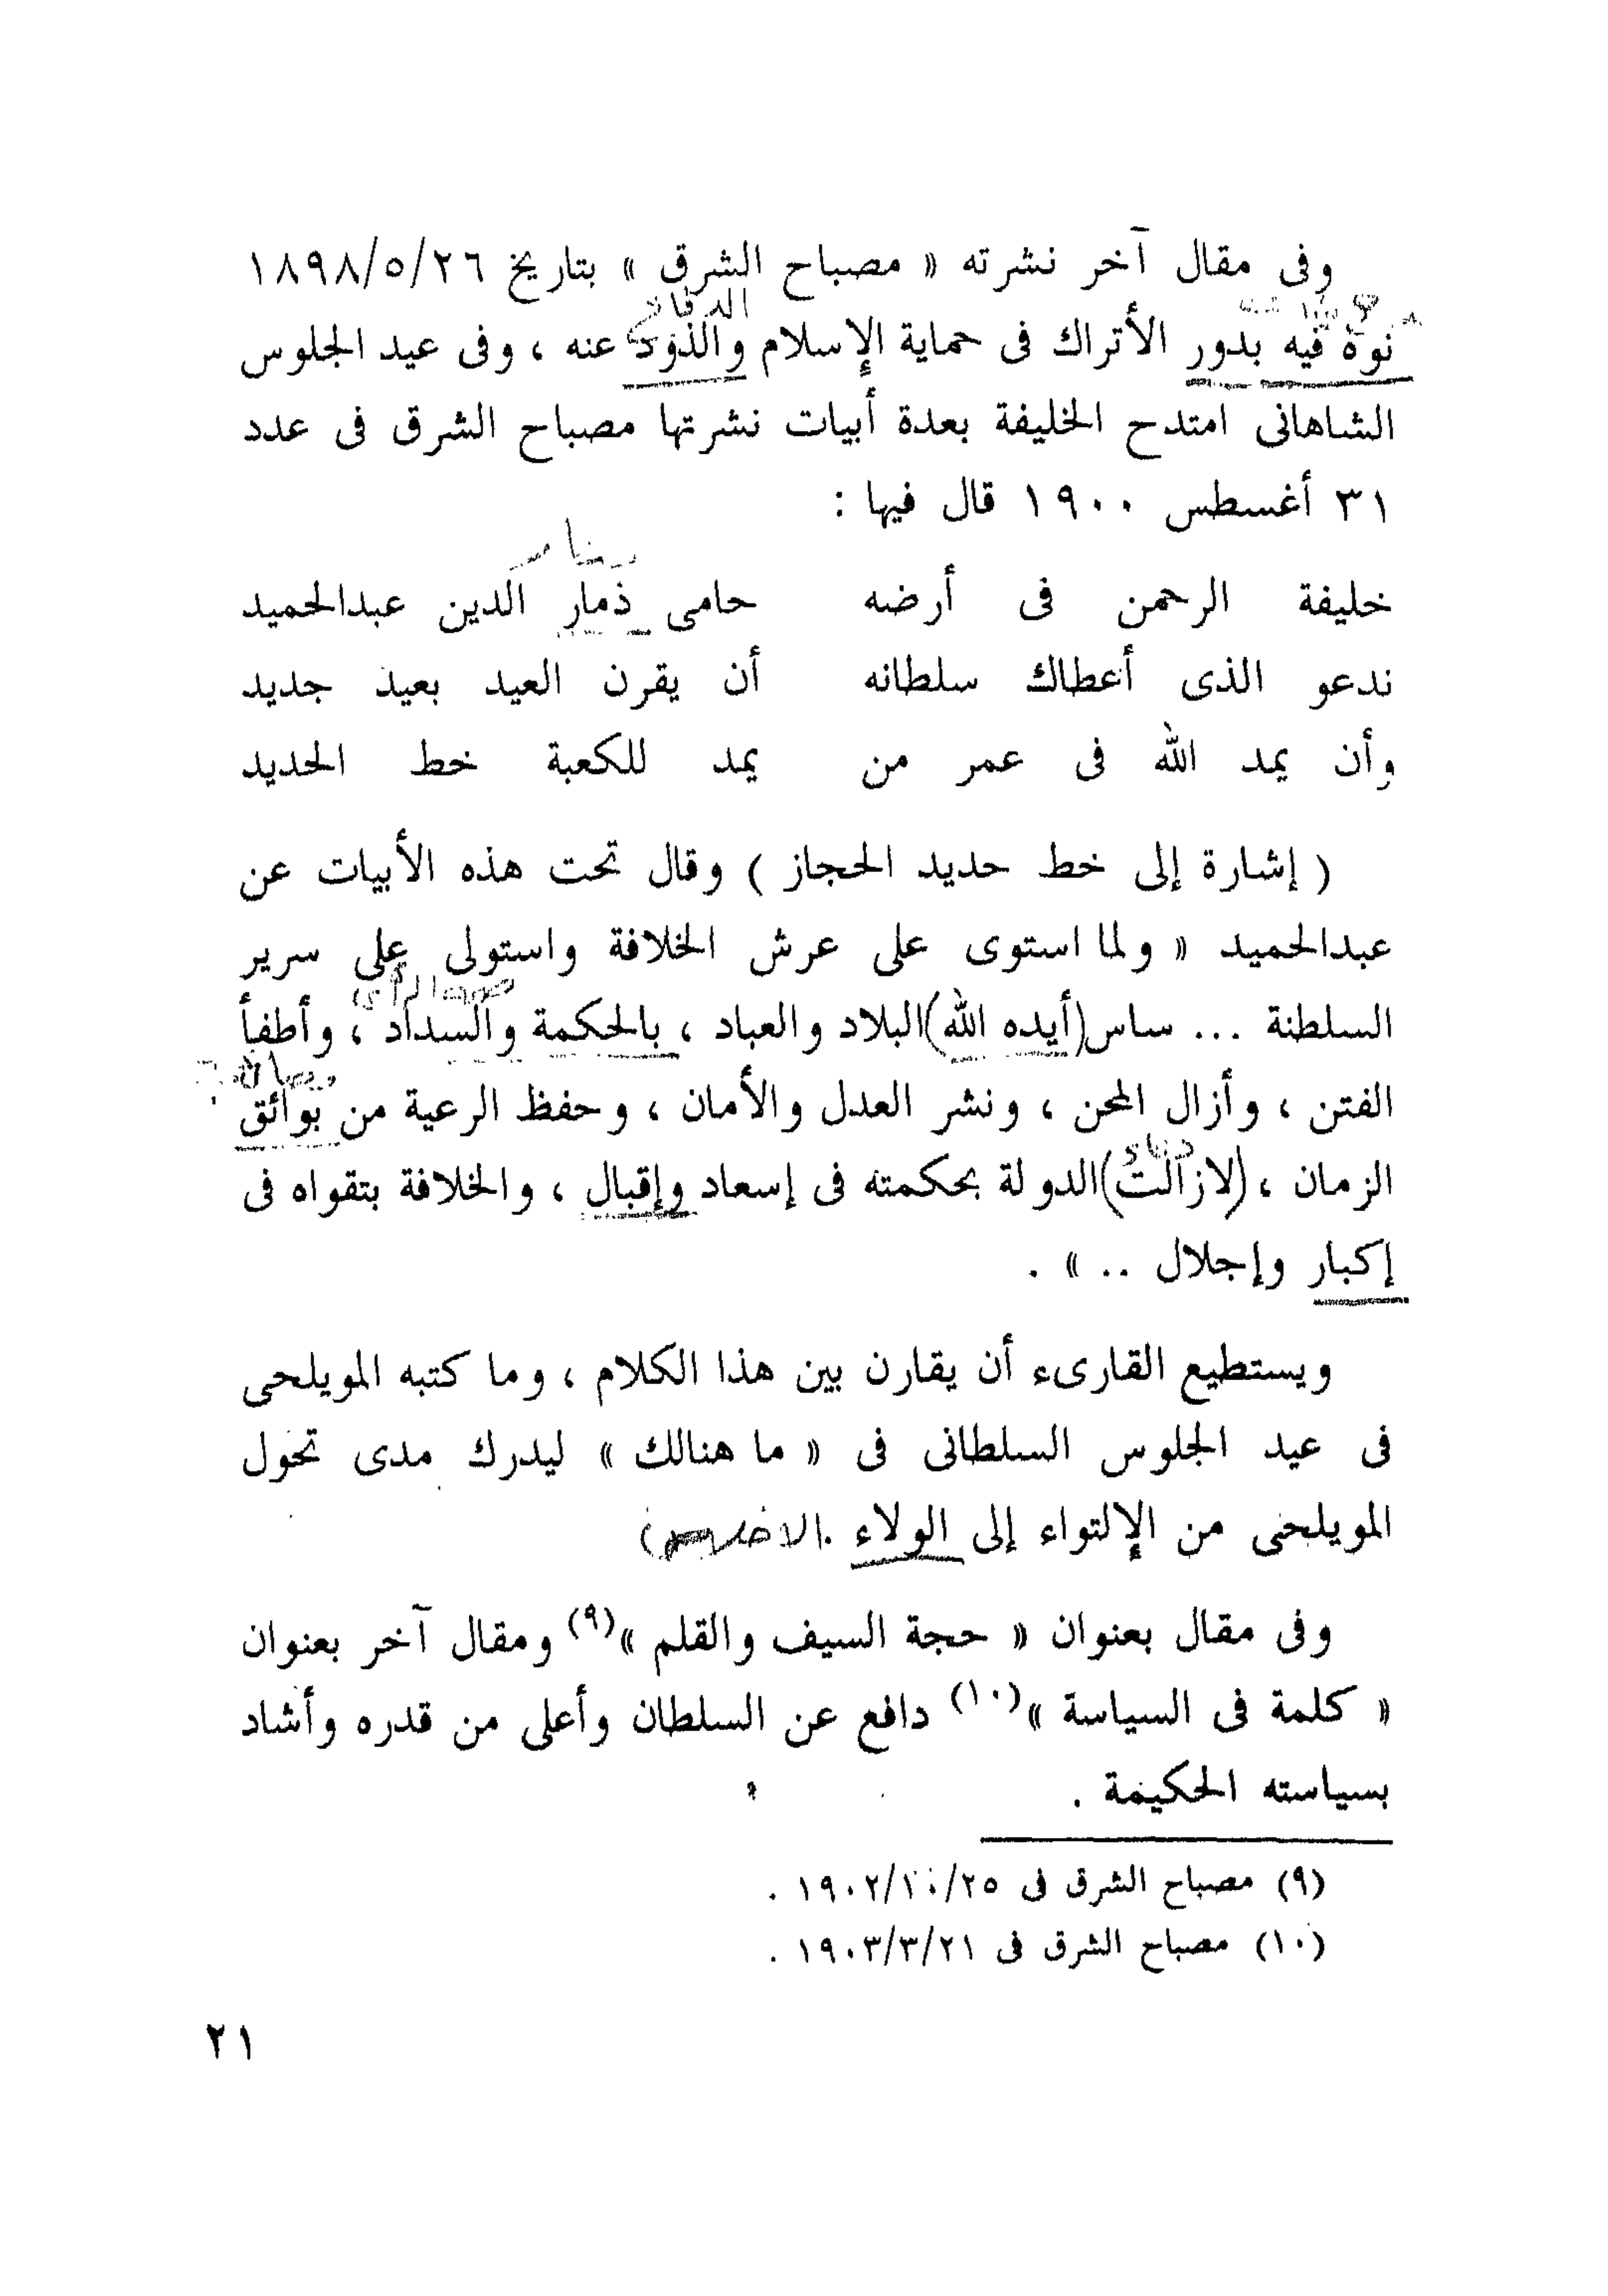 وفى مقال آخر نشرته « مصباح الشرق » بتاريخ ١٨٩٨/٥/٢٦
الدفاع
نوه فيه بدور الأتراك فى حماية الإسلام والذود عنه ، وفى عيد الجلوس
الشاهانى امتدح الخليفة بعدة أبيات نشرتها مصباح الشرق فى عدد
٣١ أغسطس ١٩٠٠ قال فيها :
خليفة الرحمن فى أرضه حامى ذمار الدين عبدالحميد
ندعو الذى أعطاك سلطانه أن يقرن العيد بعيد جديد
وأن يمد الله فى عمر من يمد للكعبة خط الحديد
( إشارة إلى خط حديد الحجاز ) وقال تحت هذه الأبيات عن
عبدالحميد « ولما استوى على عرش الخلافة واستولى على سرير
السلطنة ... ساس (أيده الله) البلاد والعباد ، بالحكمة والسداد ، وأطفأ
الفتن ، وأزال المحن ، ونشر العدل والأمان ، وحفظ الرعية من بوائق
الزمان ، (لازالت) الدولة بحكمته فى إسعاد وإقبال ، والخلافة بتقواه فى
إكبار وإجلال .. » .
ويستطيع القارىء أن يقارن بين هذا الكلام ، وما كتبه المويلحى
فى عيد الجلوس السلطانى فى « ما هنالك » ليدرك مدى تحول
المويلحى من الإلتواء إلى الولاء .
وفى مقال بعنوان « حجة السيف والقلم »(٩) ومقال آخر بعنوان
« كلمة فى السياسة »(١٠) دافع عن السلطان وأعلى من قدره وأشاد
بسياسته الحكيمة .
(٩) مصباح الشرق فى ١٩٠٢/١٠/٢٥ .
(١٠) مصباح الشرق فى ١٩٠٣/٣/٢١ .
٢١